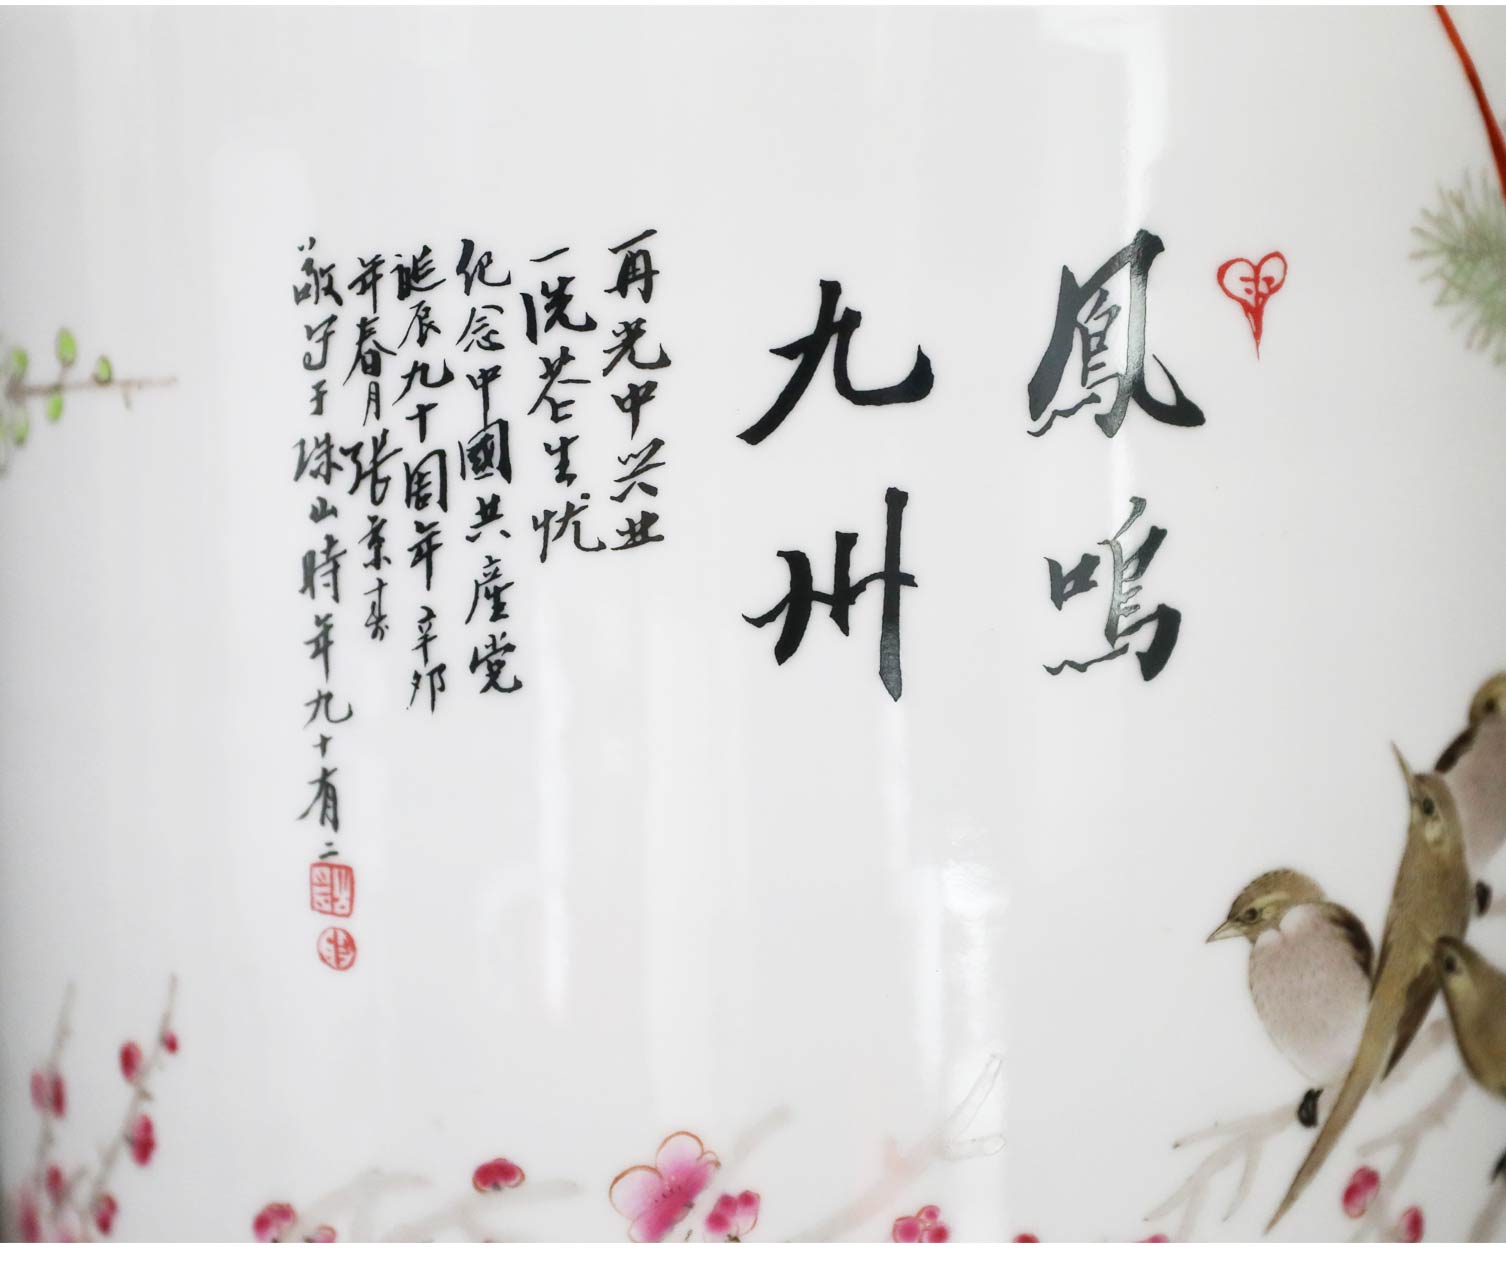 鳳鳴
九州
再光中兴业
一洗苍生忧
纪念中國共産党
誕辰九十周年辛卯
年春月張景寿
敬写于珠山時年九十有二